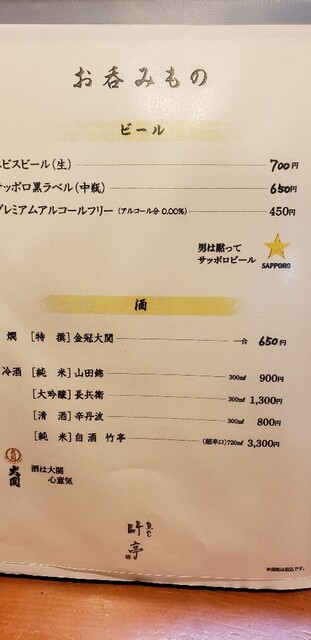 お呑みもの
ビール
ヱビスビール(生) 700円
サッポロ黒ラベル(中瓶) 650円
プレミアムアルコールフリー(アルコール分 0.00%) 450円
男は黙って
サッポロビール
SAPPORO
酒
燗 [特 撰] 金冠大関 一合 650円
冷酒 [純 米] 山田錦 300㎖ 900円
[大吟醸] 長兵衛 300㎖ 1,300円
[清 酒] 辛丹波 300㎖ 800円
[純 米] 自酒 竹亭 (超辛口)720㎖ 3,300円
大関
酒は大関
心意気
亭
※価格は税込です。